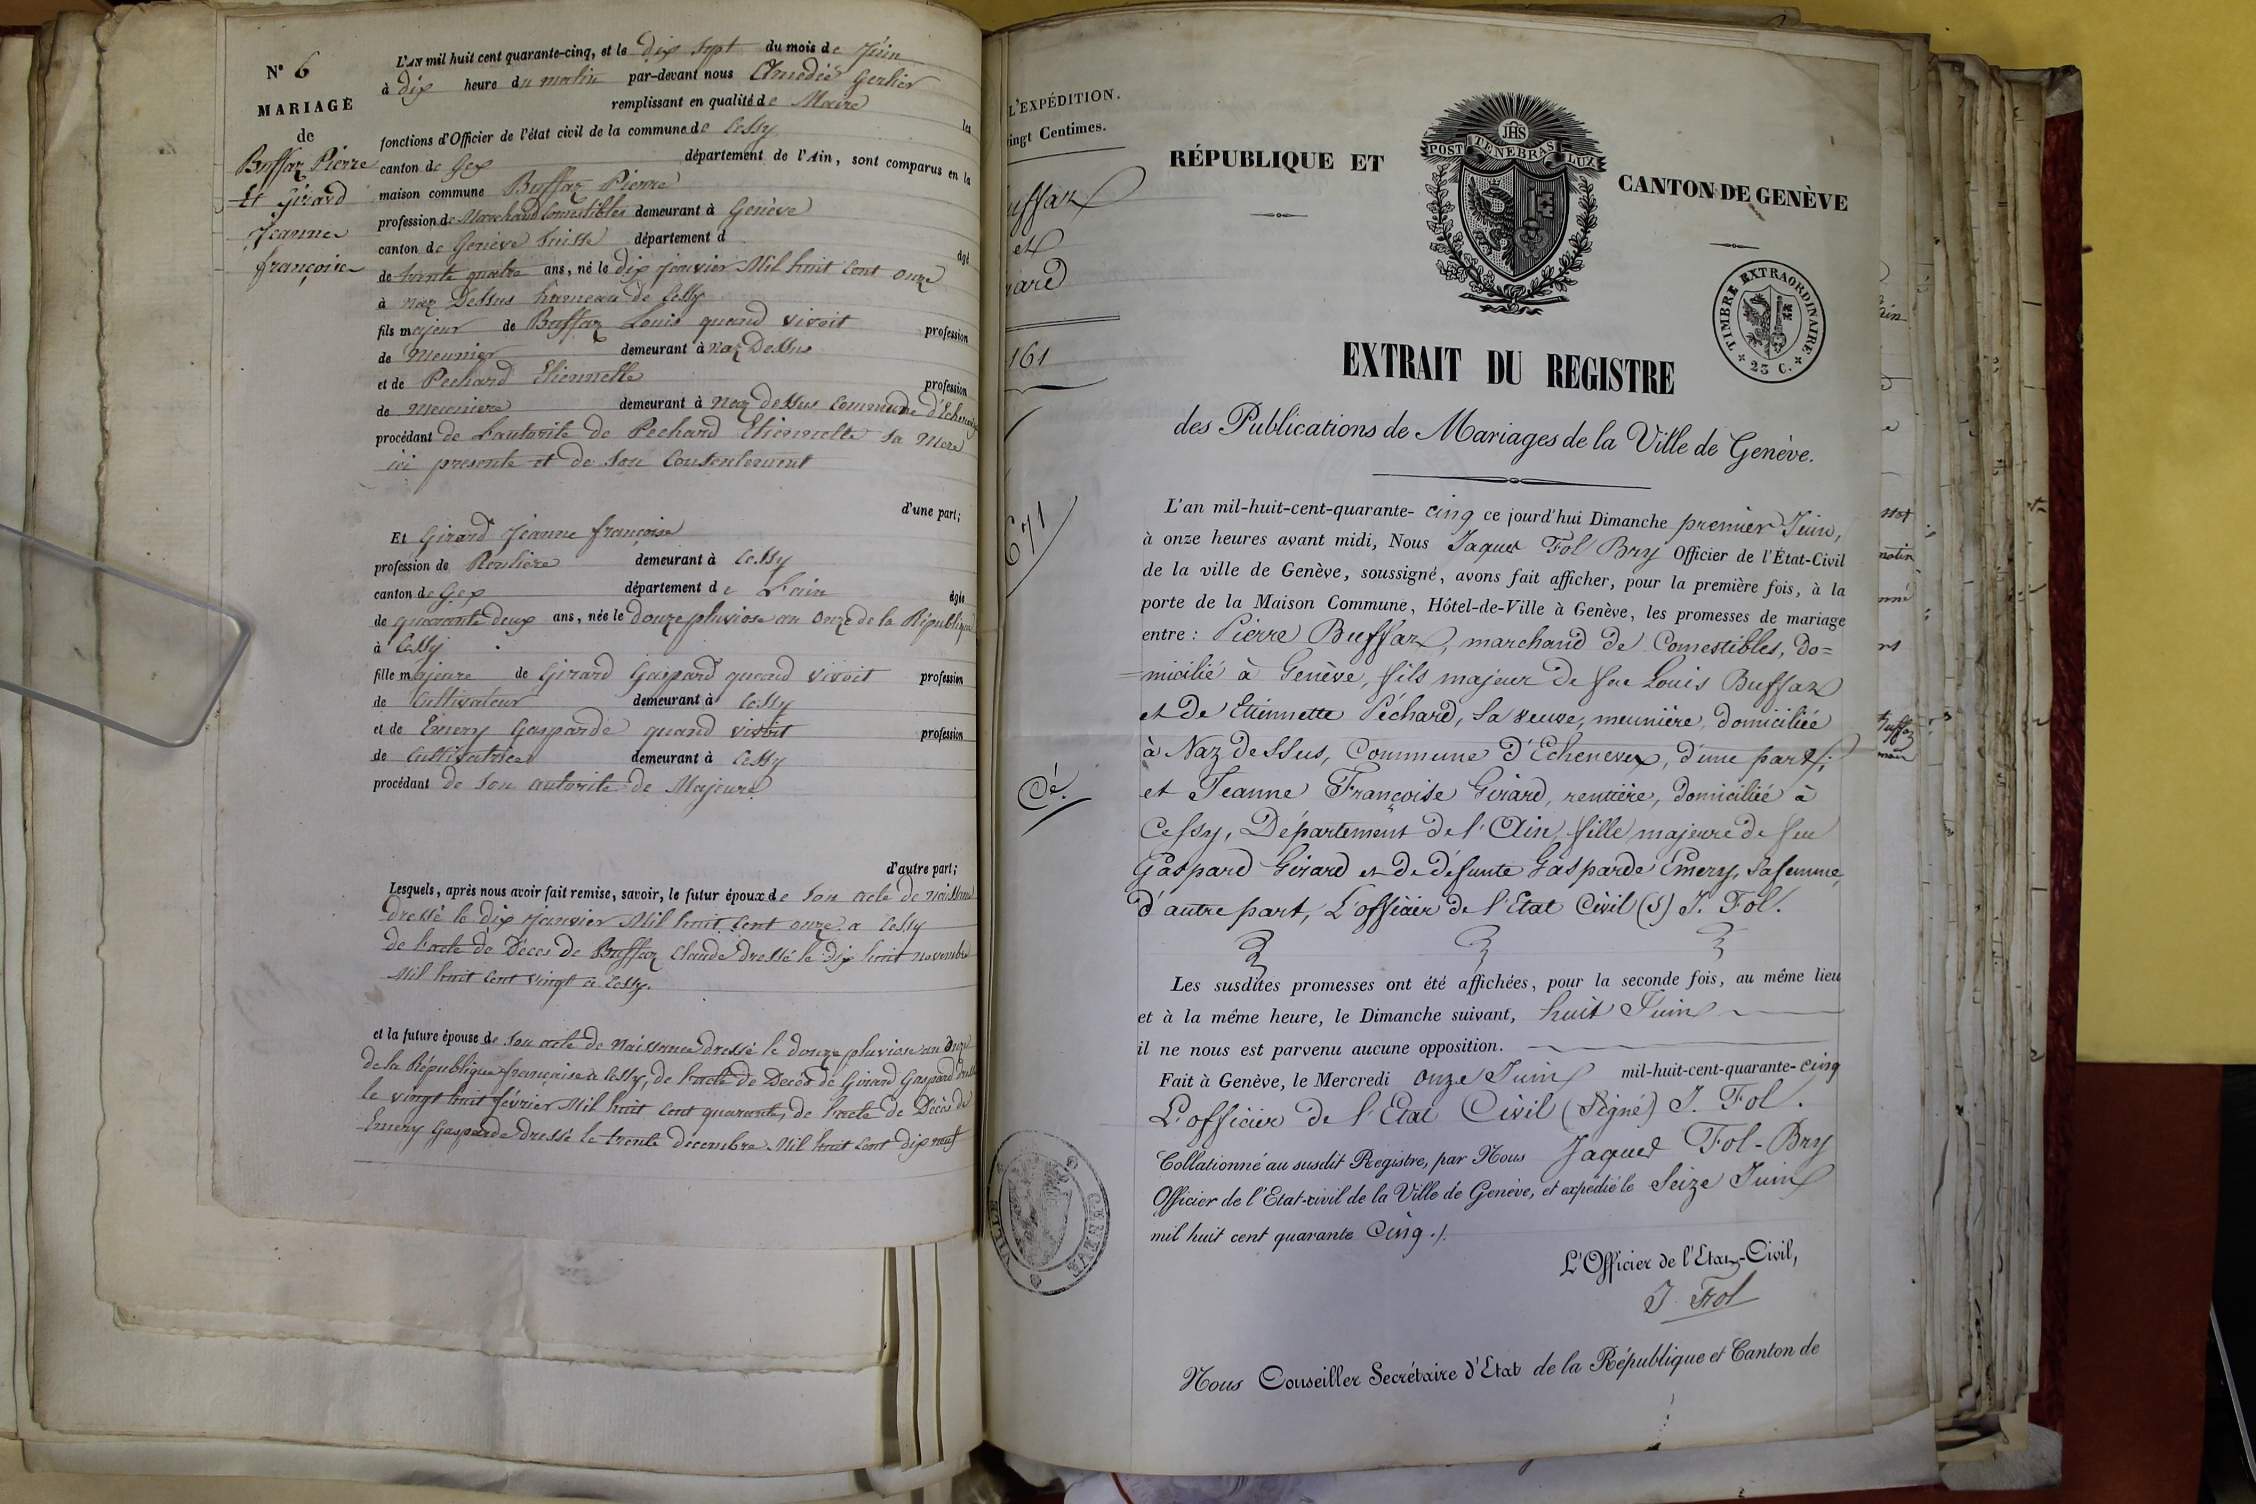 N° 6
MARIAGE
de
Buffaz Pierre
Et Girard
Jeanne
françoise
L'AN mil huit cent quarante-cinq, et le dix sept du mois de Juin
à dix heure du matin par-devant nous Amedée Gerlier
remplissant en qualité de Maire les
fonctions d'Officier de l'état civil de la commune de Cessy
canton de Gex département de l'Ain, sont comparus en la
maison commune Buffaz Pierre
profession de Marchand Comestibles demeurant à Genève
canton de Genève Suisse département d
âgé
de trente quatre ans, né le dix janvier Mil huit cent onze
à naz Dessus hameau de Cessy
fils majeur de Buffaz Louis quand vivoit profession
de Meunier demeurant à naz Dessus
et de Pechard Etiennette profession
de meuniere demeurant à naz dessus Commune d'Echenevex
procédant de L'autorité de Pechard Etiennette sa Mere
ici presente et de son Consentement
d'une part;
Et Girard Jeanne françoise
profession de Rentière demeurant à Cessy
canton de Gex département de L'ain âgée
de quarante deux ans, née le douze pluviose an onze de la République
à Cessy
fille majeure de Girard Gaspard quand vivoit profession
de Cultivateur demeurant à Cessy
et de Emery Gasparde quand vivoit profession
de Cultivatrice demeurant à Cessy
procédant de son autorité de Majeure
d'autre part;
Lesquels, après nous avoir fait remise, savoir, le futur époux de Son acte de naissance
dressé le dix Janvier Mil huit Cent onze a Cessy
de l'acte de Décès de Buffaz Claude dressé le dix huit novembre
Mil huit Cent vingt à Cessy.
et la future épouse de Son acte de Naissance dressé le douze pluviose an onze
de la République française à Cessy, de l'acte de Décès de Girard Gaspard
le vingt huit février Mil huit Cent quarante, de l'acte de Décès de
Emery Gasparde dressé le trente decembre Mil huit Cent dix neuf
L'EXPÉDITION.
ingt Centimes.
uffaz
et
ard
161
671
Cé.
RÉPUBLIQUE ET CANTON DE GENÈVE
JHS
POST TENEBRAS LUX
TIMBRE EXTRAORDINAIRE
25 C.
EXTRAIT DU REGISTRE
des Publications de Mariages de la Ville de Genève.
L'an mil-huit-cent-quarante- cinq ce jourd'hui Dimanche premier Juin,
à onze heures avant midi, Nous Jaques Fol Bry Officier de l'État-Civil
de la ville de Genève, soussigné, avons fait afficher, pour la première fois, à la
porte de la Maison Commune, Hôtel-de-Ville à Genève, les promesses de mariage
entre: Pierre Buffaz, marchand de Comestibles, do=
=micilié à Genève, fils majeur de feu Louis Buffaz
et de Etiennette Péchard, sa veuve, meunière, domiciliée
à Naz dessus, Commune d'Echenevex, d'une part;
et Jeanne Françoise Girard, rentière, domiciliée à
Cessy, Département de l'Ain, fille majeure de feu
Gaspard Girard et de défunte Gasparde Emery, sa femme,
d'autre part, L'officier de l'Etat Civil (S) J. Fol.
Les susdites promesses ont été affichées, pour la seconde fois, au même lieu
et à la même heure, le Dimanche suivant, huit Juin
il ne nous est parvenu aucune opposition.
Fait à Genève, le Mercredi onze Juin mil-huit-cent-quarante- cinq
L'officier de l'Etat Civil (Signé) J. Fol.
Collationné au susdit Registre, par Nous Jaques Fol-Bry
Officier de l'Etat-civil de la Ville de Genève, et expédié le Seize Juin
mil huit cent quarante Cinq./.
VILLE GENÈVE
L'Officier de l'Etat-Civil,
J. Fol
Nous Conseiller Secrétaire d'Etat de la République et Canton de